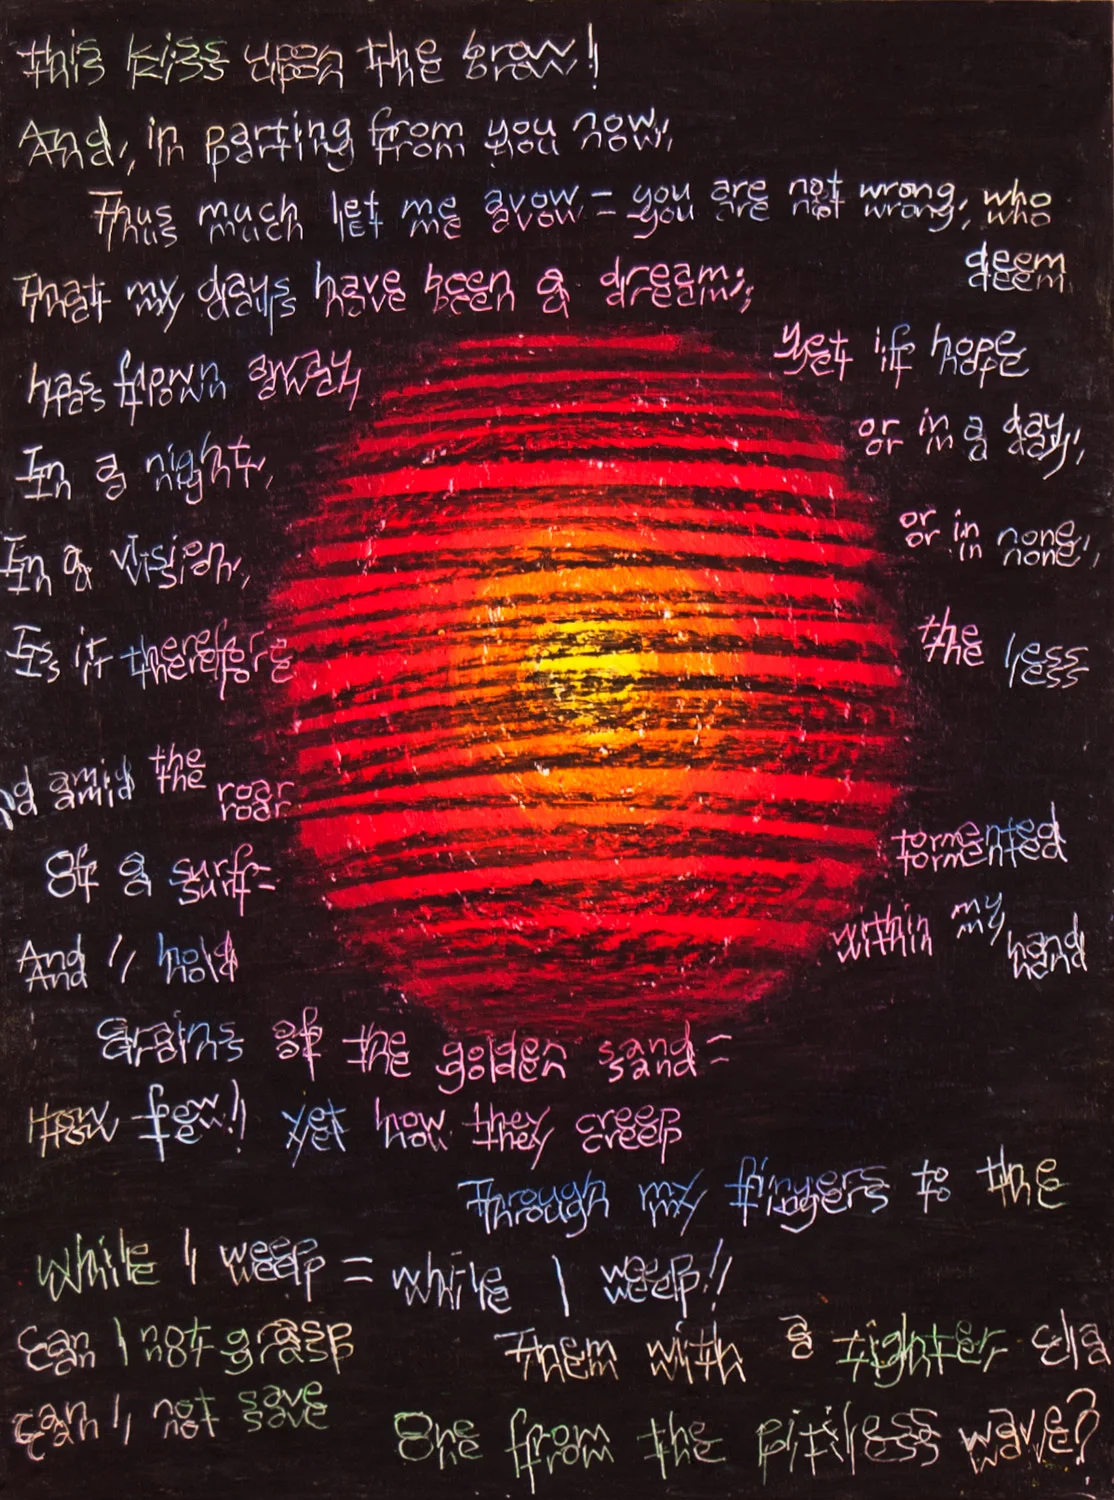 this kiss upon the brow!
And, in parting from you now,
Thus much let me avow = you are not wrong, who
deem
That my days have been a dream;
Yet if hope
has flown away
or in a day,
In a night,
or in none,
In a vision,
Is it therefore
the less
nd amid the roar
tormented
Of a surf-
within my hand
And I hold
Grains of the golden sand =
How few! yet how they creep
Through my fingers to the
while I weep = while I weep!
can I not grasp
Them with a tighter cla
can I not save
One from the pitiless wave?